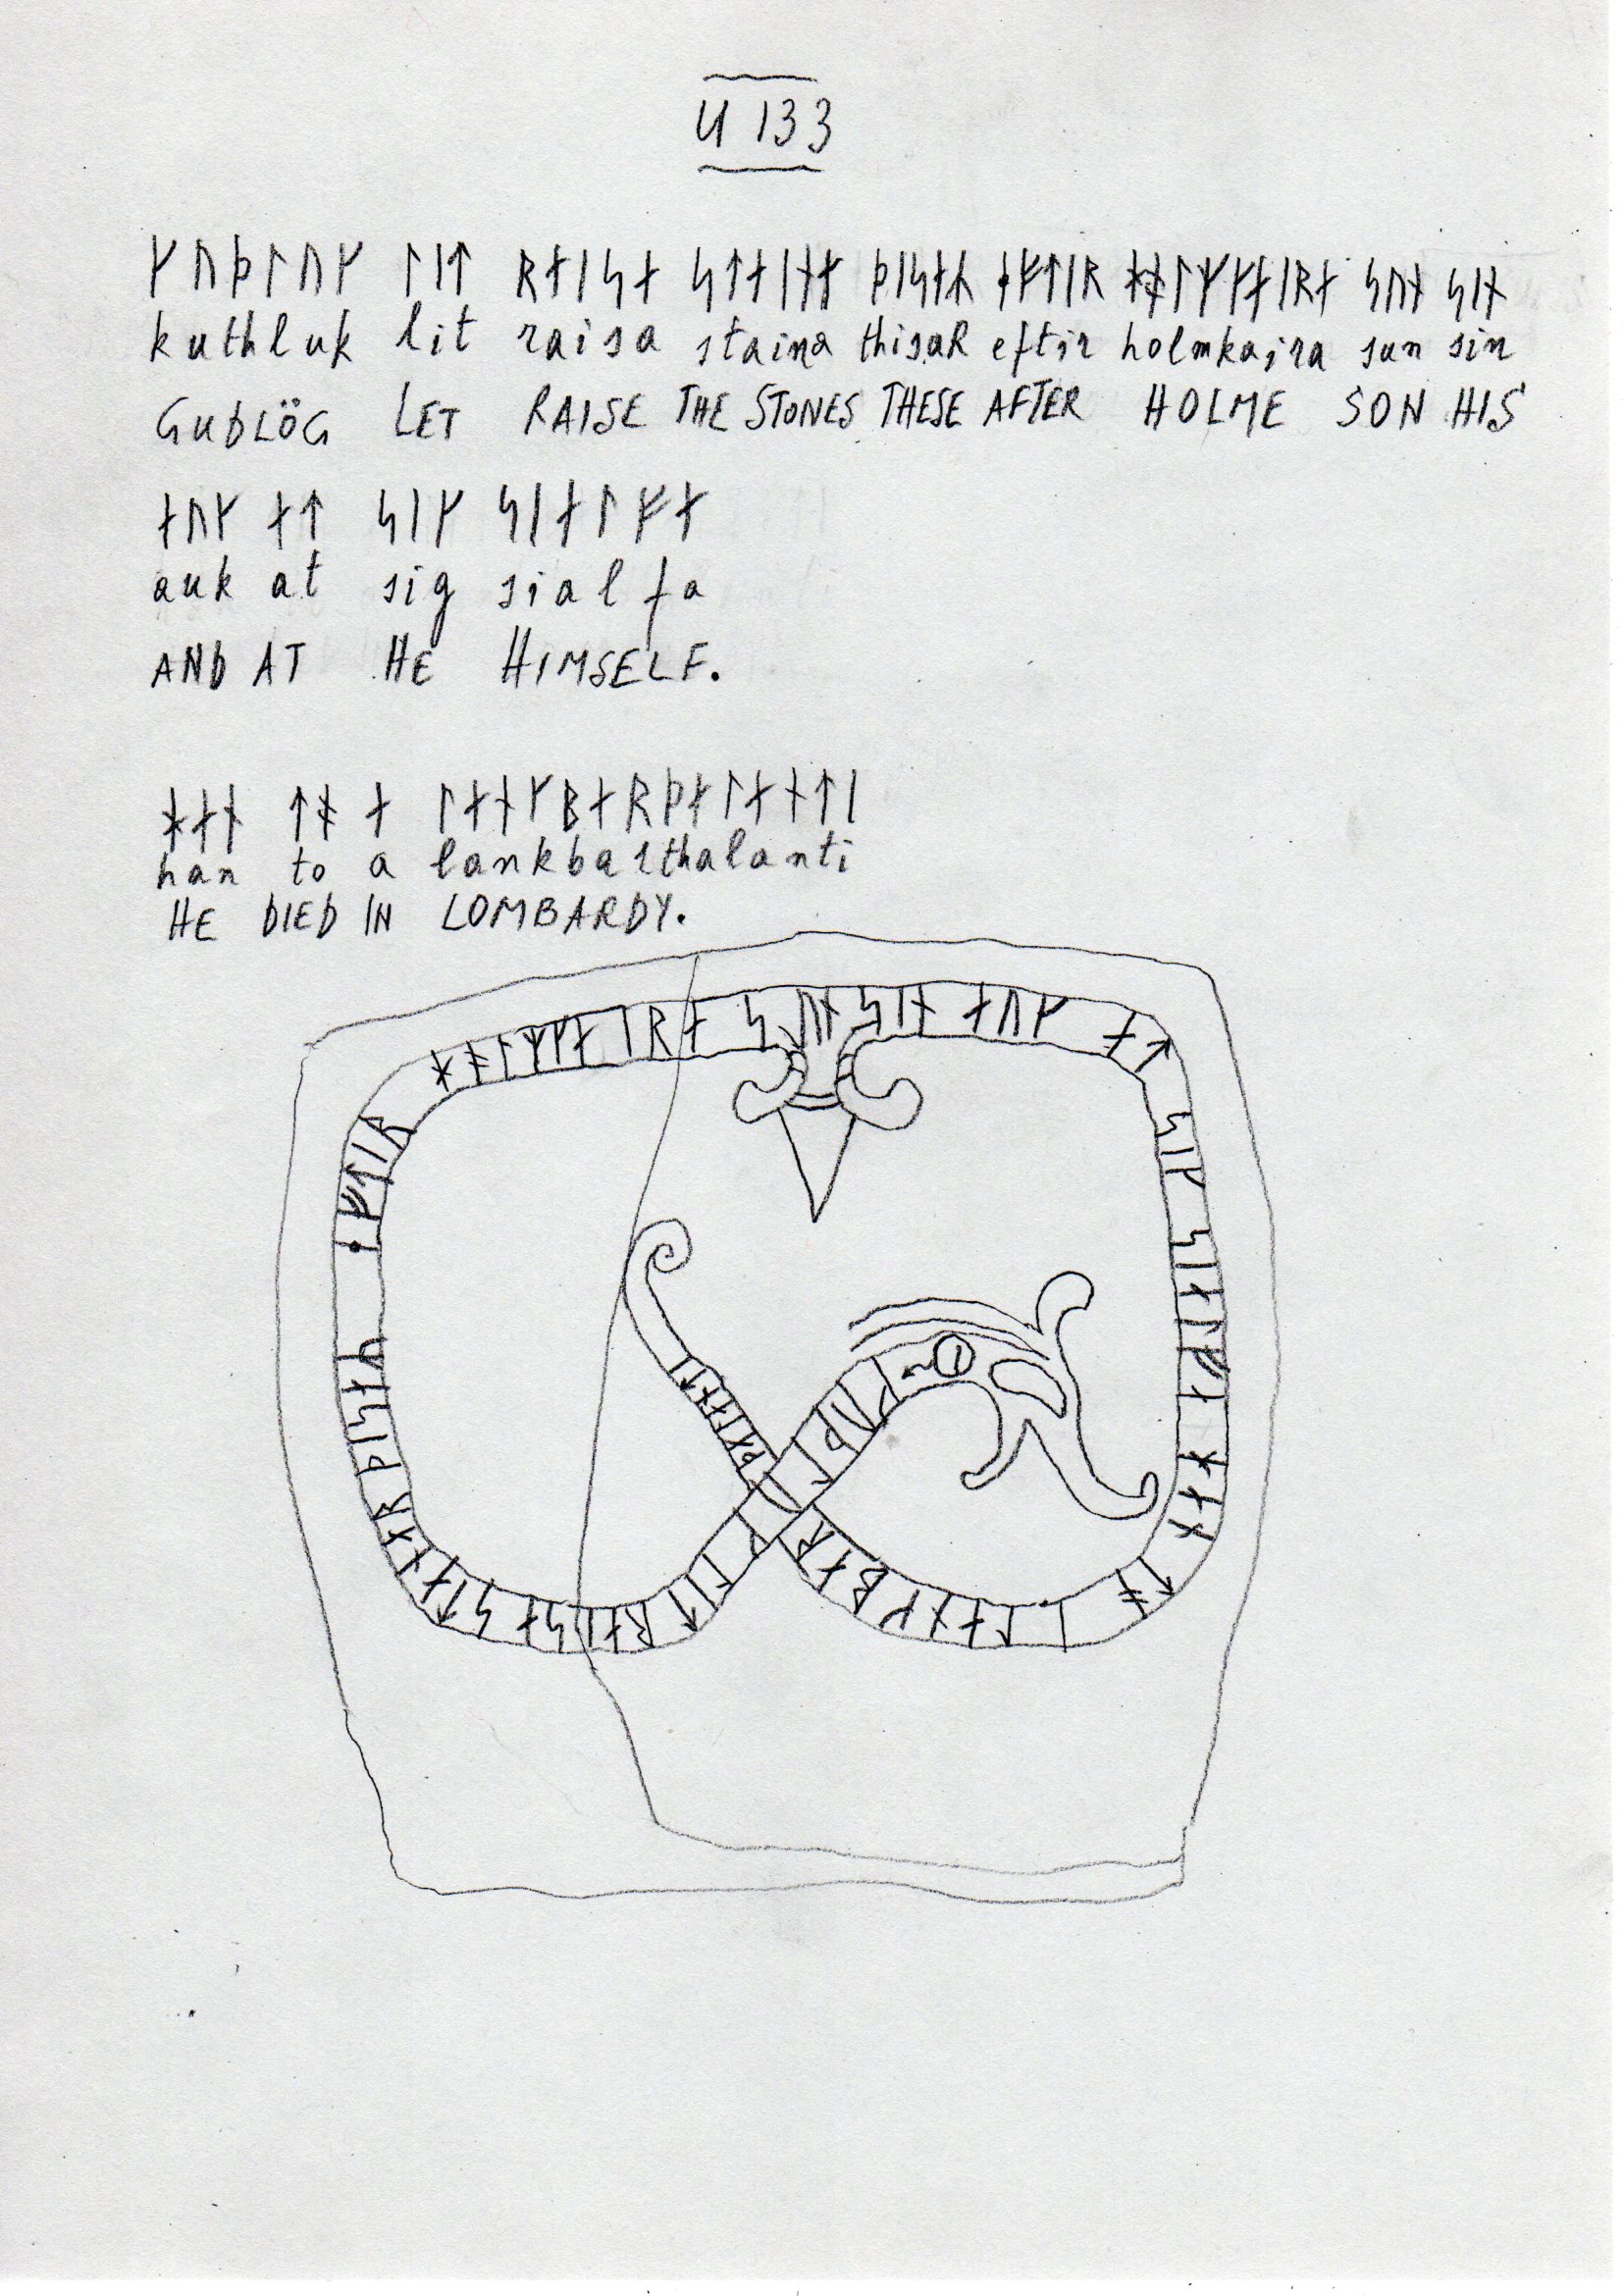 U 133
ᚴᚢᚦᛚᚢᚴ ᛚᛁᛏ ᚱᛅᛁᛋᛅ ᛋᛏᛅᛁᚾᛅ ᚦᛁᛋᛅᛦ ᛂᚠᛏᛁᚱ ᚼᚬᛚᛘᚴᛅᛁᚱᛅ ᛋᚢᚾ ᛋᛁᚾ
kuthluk lit raisa staina thisaR eftir holmkaira sun sin
GUÐLÖG LET RAISE THE STONES THESE AFTER HOLME SON HIS
ᛅᚢᚴ ᛅᛏ ᛋᛁᚴ ᛋᛁᛅᛚᚠᛅ
auk at sig sialfa
AND AT HE HIMSELF.
ᚼᛅᚾ ᛏᚬ ᛅ ᛚᛅᚾᚴᛒᛅᚱᚦᛅᛚᛅᚾᛏᛁ
han to a lankbarthalanti
HE DIED IN LOMBARDY.
ᛂᚠᛏᛁᚱ ᚼᚬᛚᛘᚴᛅᛁᚱᛅ ᛋᚢᚾ ᛋᛁᚾ ᛅᚢᚴ ᛅᛏ ᛋᛁᚴ ᛋᛁᛅᛚᚠᛅ ᚼᛅᚾ ᛏᚬ